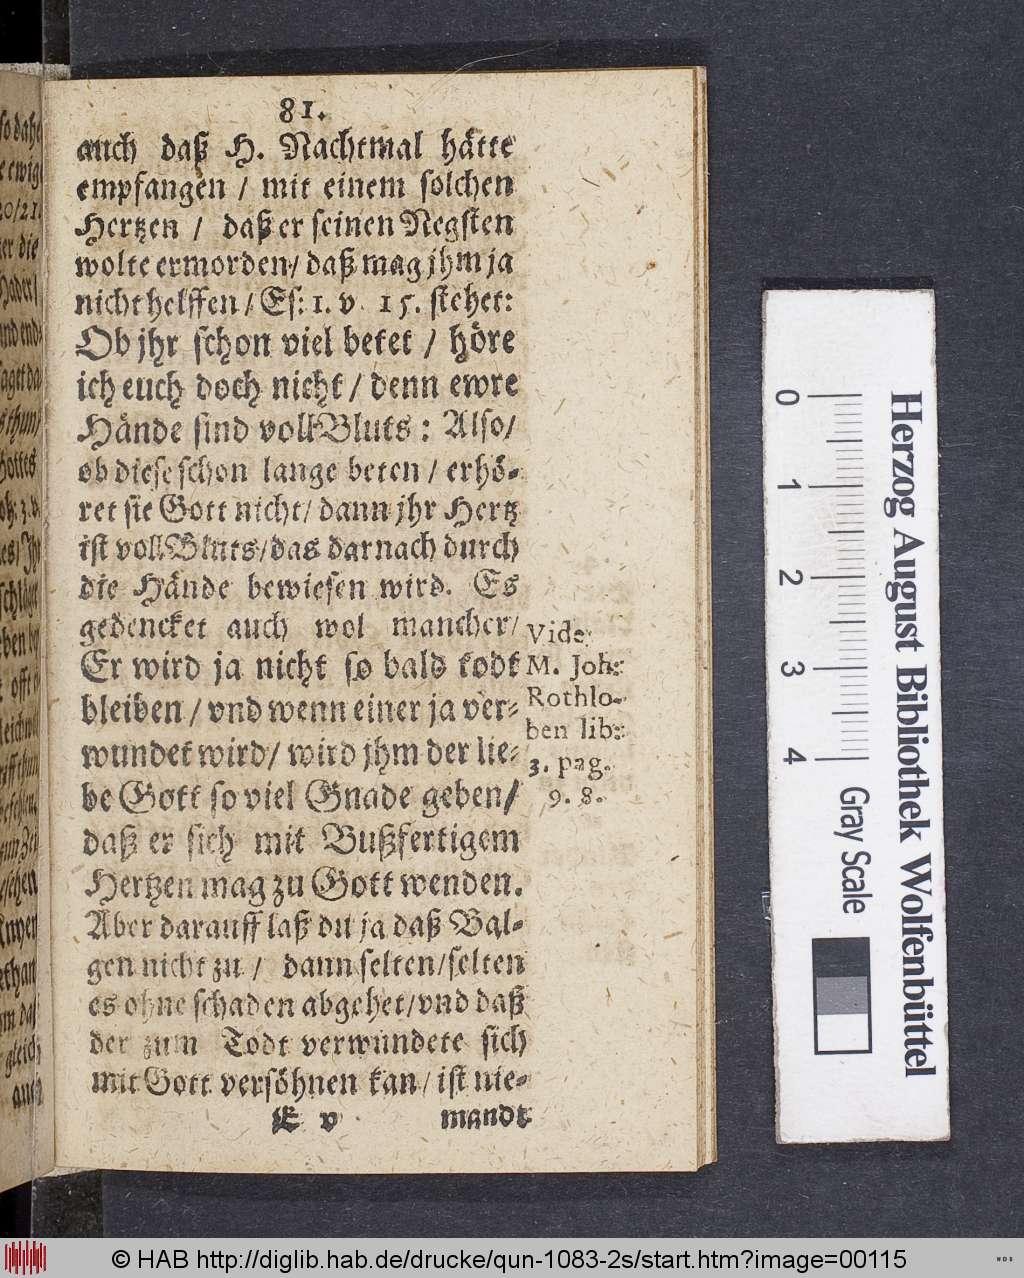 81.
auch daß H. Nachtmal hätte
empfangen / mit einem solchen
Hertzen / daß er seinen Negsten
wolte ermorden / daß mag jhm ja
nicht helffen / Es: 1. v 15. stehet:
Ob jhr schon viel betet / höre
ich euch doch nicht / denn ewre
Hände sind voll Bluts : Also /
ob diese schon lange beten / erhö-
ret sie Gott nicht / dann jhr Hertz
ist voll Bluts / das darnach durch
die Hände bewiesen wird. Es
gedencket auch wol mancher /
Er wird ja nicht so bald todt
bleiben / vnd wenn einer ja ver-
wundet wird / wird jhm der lie-
be Gott so viel Gnade geben /
daß er sich mit Bußfertigem
Hertzen mag zu Gott wenden.
Aber darauff laß du ja daß Bal-
gen nicht zu / dann selten / selten
es ohne schaden abgehet / vnd daß
der zum Todt verwundete sich
mit Gott versöhnen kan / ist nie-
E v mandt
Vide
M. Joh:
Rothlo-
ben lib:
3. pag.
9. 8.
so dahe
ewig
20/21.
er die
Hader/
saget da
thun/
Gottes
Joh: 3. v.
schläget
oft
gleich
auch
0 1 2 3 4
Herzog August Bibliothek Wolfenbüttel
Gray Scale
© HAB http://diglib.hab.de/drucke/qun-1083-2s/start.htm?image=00115